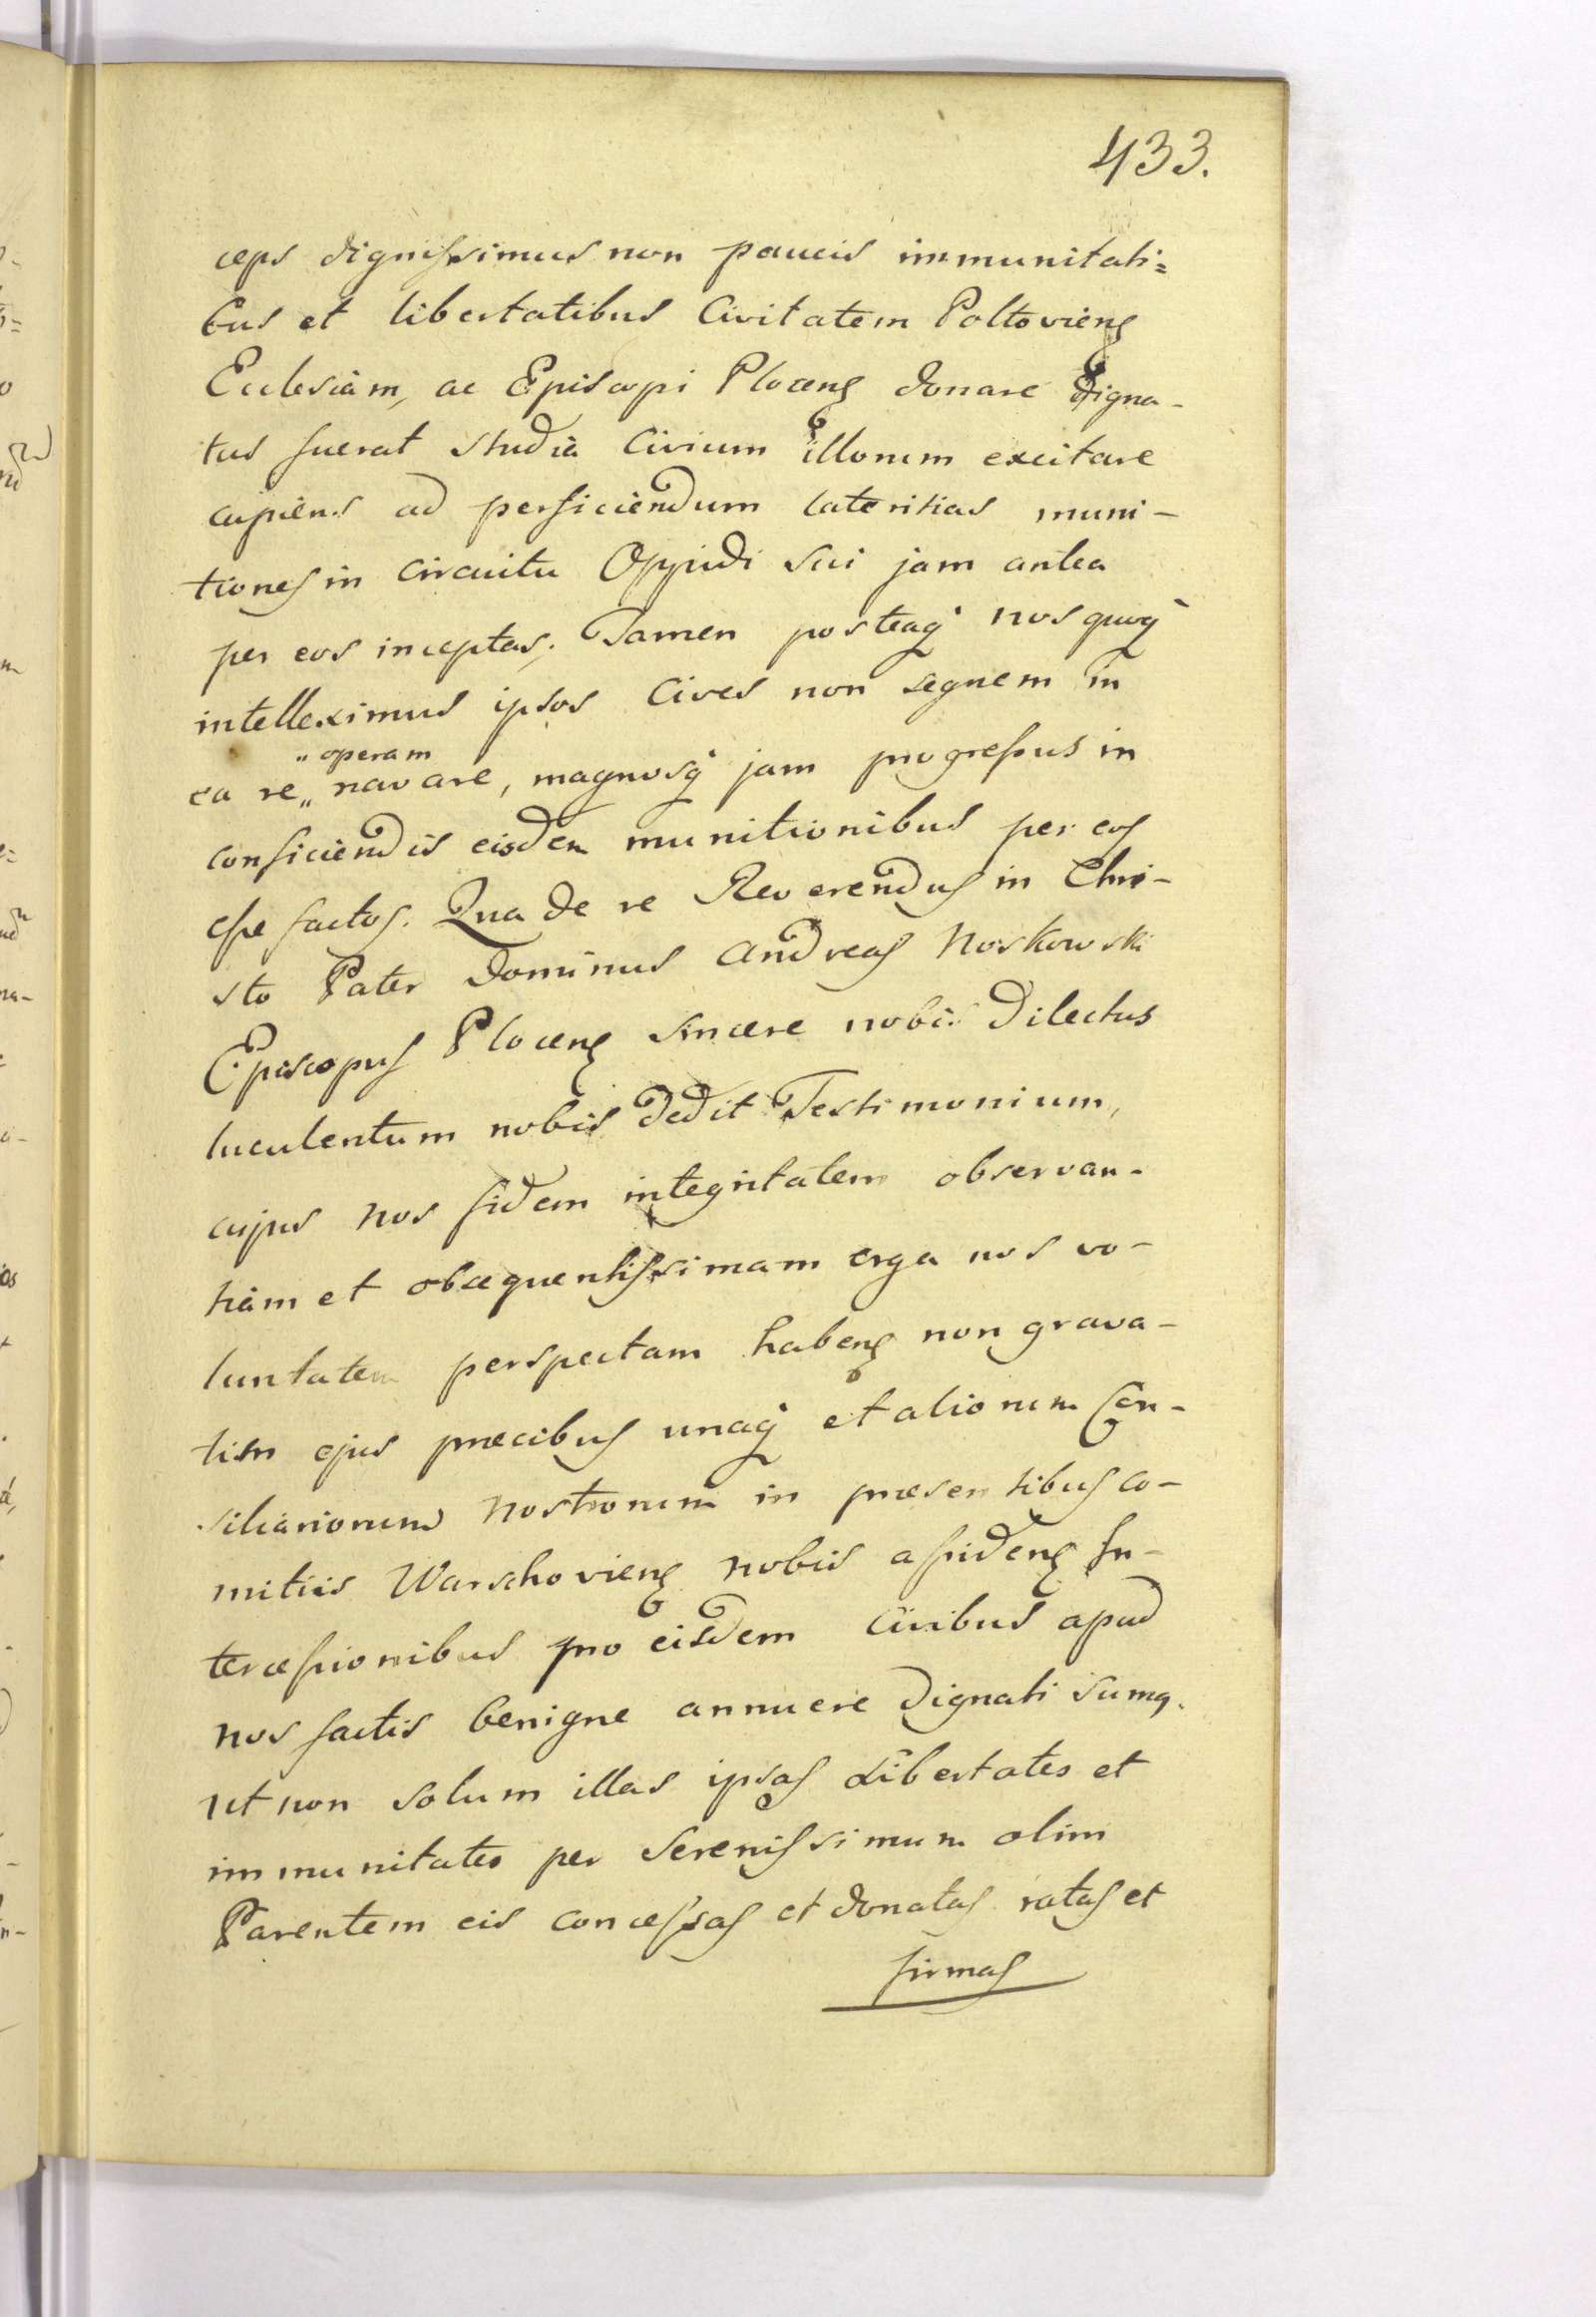 433.
ceps dignissimus non paucis immunitati=
bus et libertatibus Civitatem Poltoviens
Ecclesiam, ac Episcopi Plocens donare digna-
tus fuerat studia Civium illorum excitare
cupiens ad perficiendum lateritias muni-
tiones in circuitu Oppidi sui jam antea
per eos inceptas; Tamen posteaq nos quoq
intelleximus ipsos Cives non segnem in
"operam
ea re „ navare, magnosq jam progressus in
conficiendis eisdem munitionibus per eos
esse factos. Qua de re Reverendus in Chri-
sto Pater Dominus Andreas Noskowski
Episcopus Plocens sincere nobis Dilectus
luculentum nobis Dedit Testimonium,
cujus nos fidem integritatem observan-
tiam et obsequentissimam erga nos vo-
luntatem perspectam habens non grava-
tim ejus precibus unaq et aliorum Con-
siliariorum Nostrorum in praesentibus co-
mitiis Warschoviens nobis assidens In-
tercessionibus pro eisdem Civibus apud
nos factis benigne annuere Dignati sumq.
ut non solum illas ipsas Libertates et
immunitates per Serenissimum olim
Parentem eis concessas et donatas ratas et
firmas